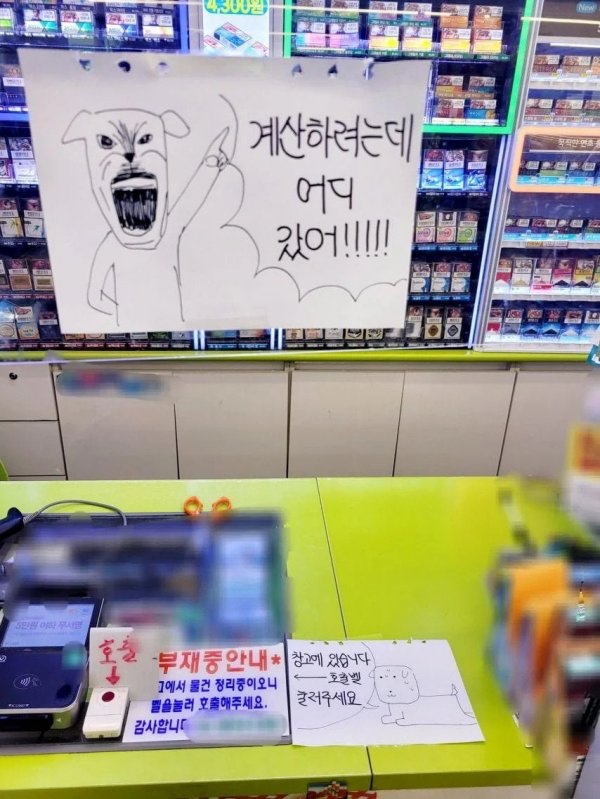 4,300원
New
계산하려는데
어디
갔어!!!!!
5만원 이하 무서명
호출
부재중안내*
고에서 물건 정리중이오니
벨을눌러 호출해주세요.
감사합니다
창고에 있습니다
호출벨
눌러주세요